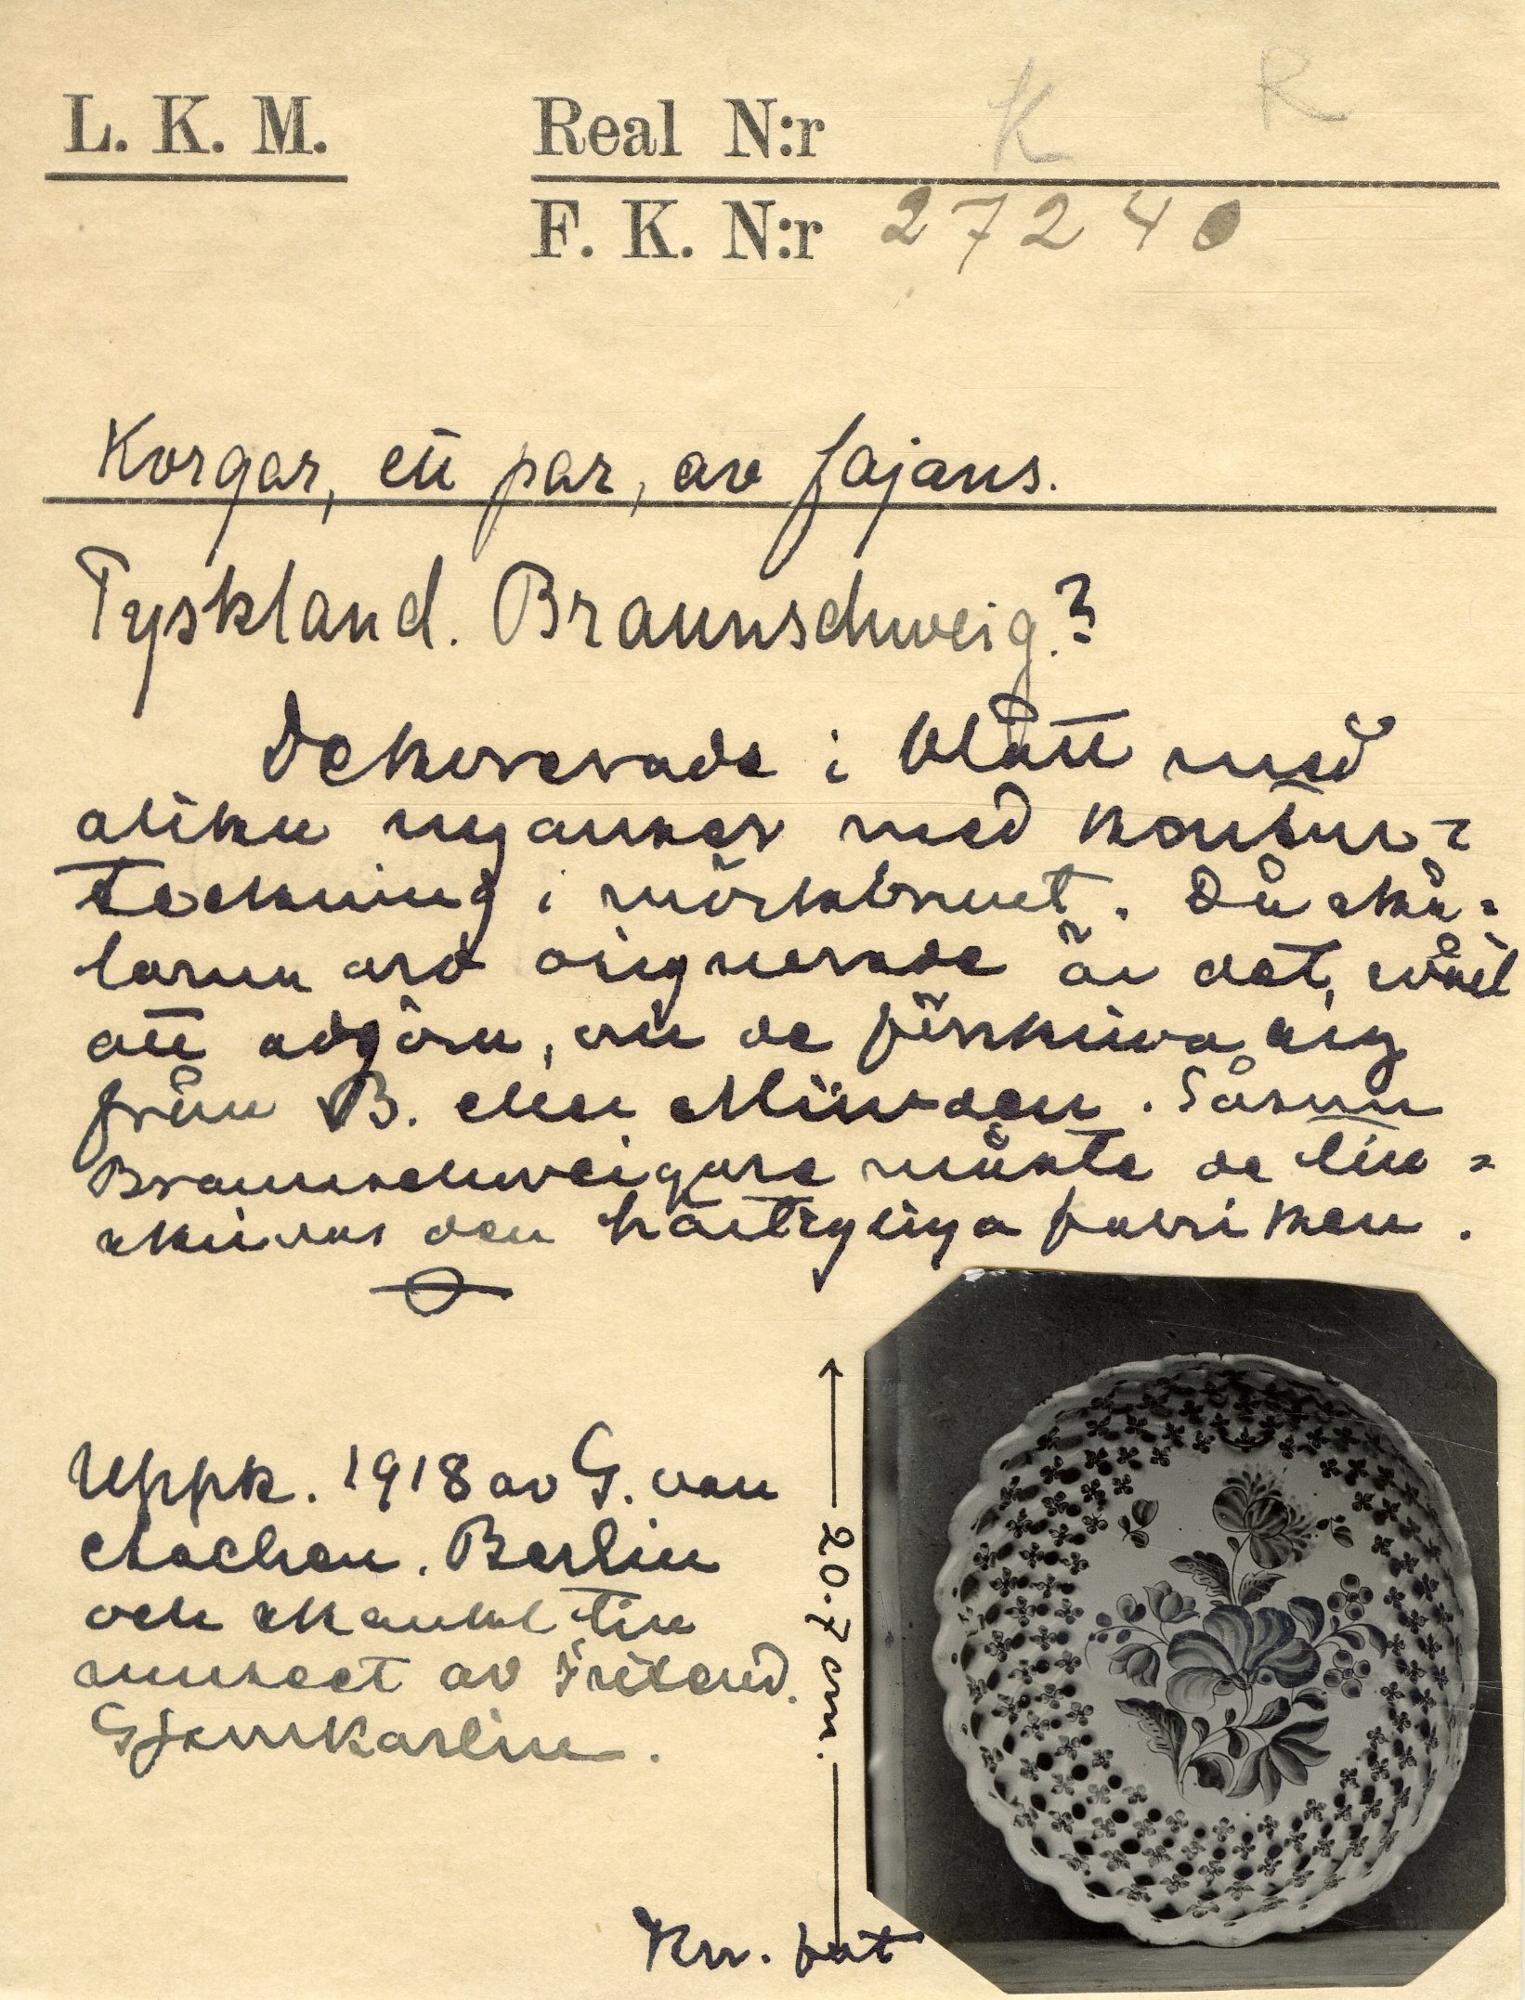 L. K. M.
Real N:r K R
F. K. N:r 27240
Korgar, ett par, av fajans.
Tyskland. Braunschweig?
Dekorerade i blått med
olika nyanser med kontur-
teckning i mörkbrunt. Då skå-
larna äro osignerade är det svårt
att avgöra, om de förskriva sig
från B. eller Münden. Såsom
Braunschweigare måste de till-
skrivas den hertigliga fabriken.
Uppk. 1918 av G. van
Aachen. Berlin
och skänkt till
museet av
Gjörn Karlin.
20.7 cm.
Krr. fat